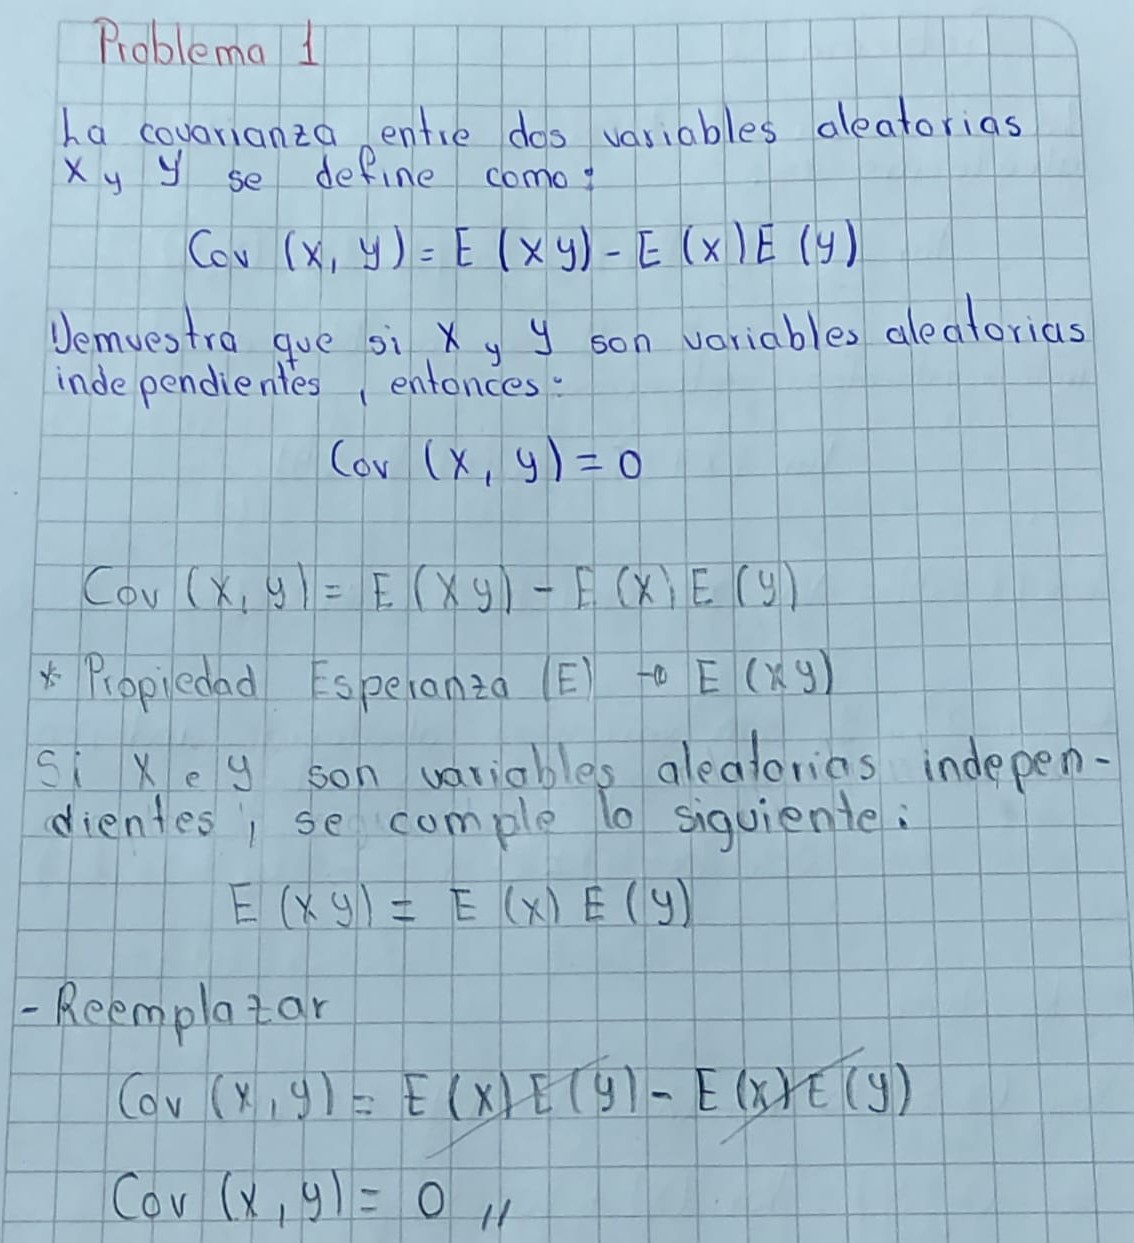 Problema 1
La covarianza entre dos variables aleatorias
X y Y se define como:
Cov (x, y) = E (xy) - E (x) E (y)
Demuestra que si X y Y son variables aleatorias
independientes, entonces:
Cov (x, y) = 0
Cov (x, y) = E (xy) - E (x) E (y)
* Propiedad Esperanza (E) → E (xy)
Si X e y son variables aleatorias indepen-
dientes, se cumple lo siguiente:
E (xy) = E (x) E (y)
- Reemplazar
Cov (x, y) = E (x) E (y) - E (x) E (y)
Cov (x, y) = 0 //